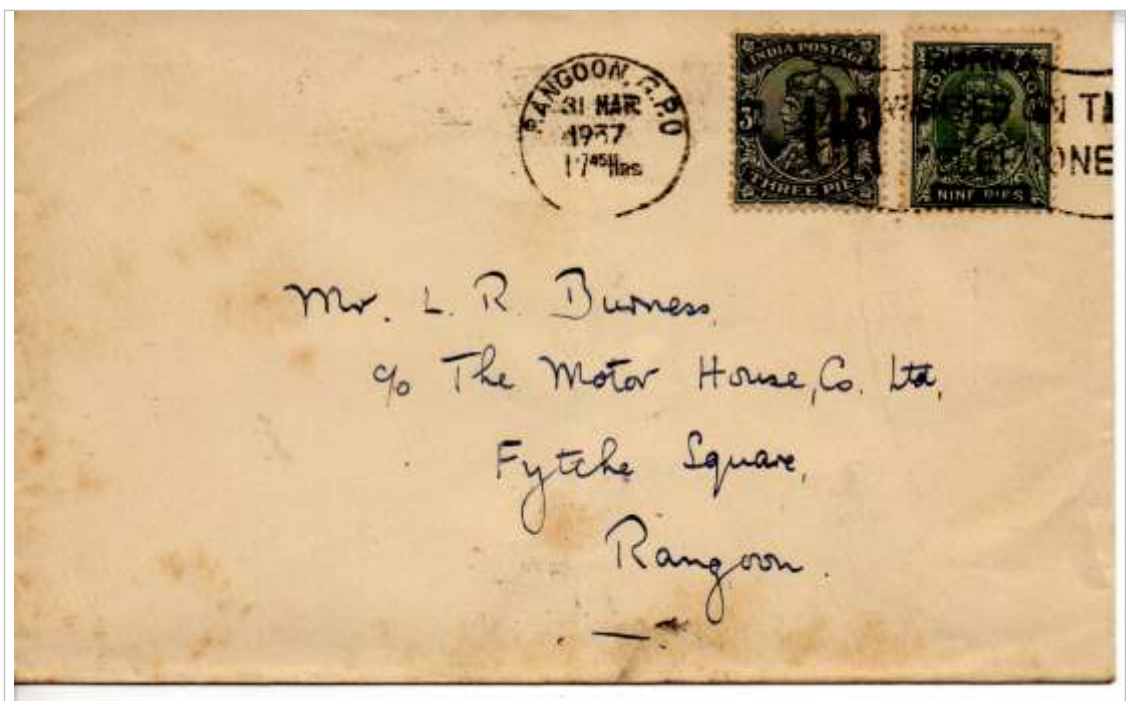 RANGOON, G.P.O
31 MAR
1937
17 45 HRS
INDIA POSTAGE
3P 3P
THREE PIES
NINE PIES
ON T
ONE
Mr. L. R. Burness,
c/o The Motor House, Co. Ltd,
Fytche Square,
Rangoon.